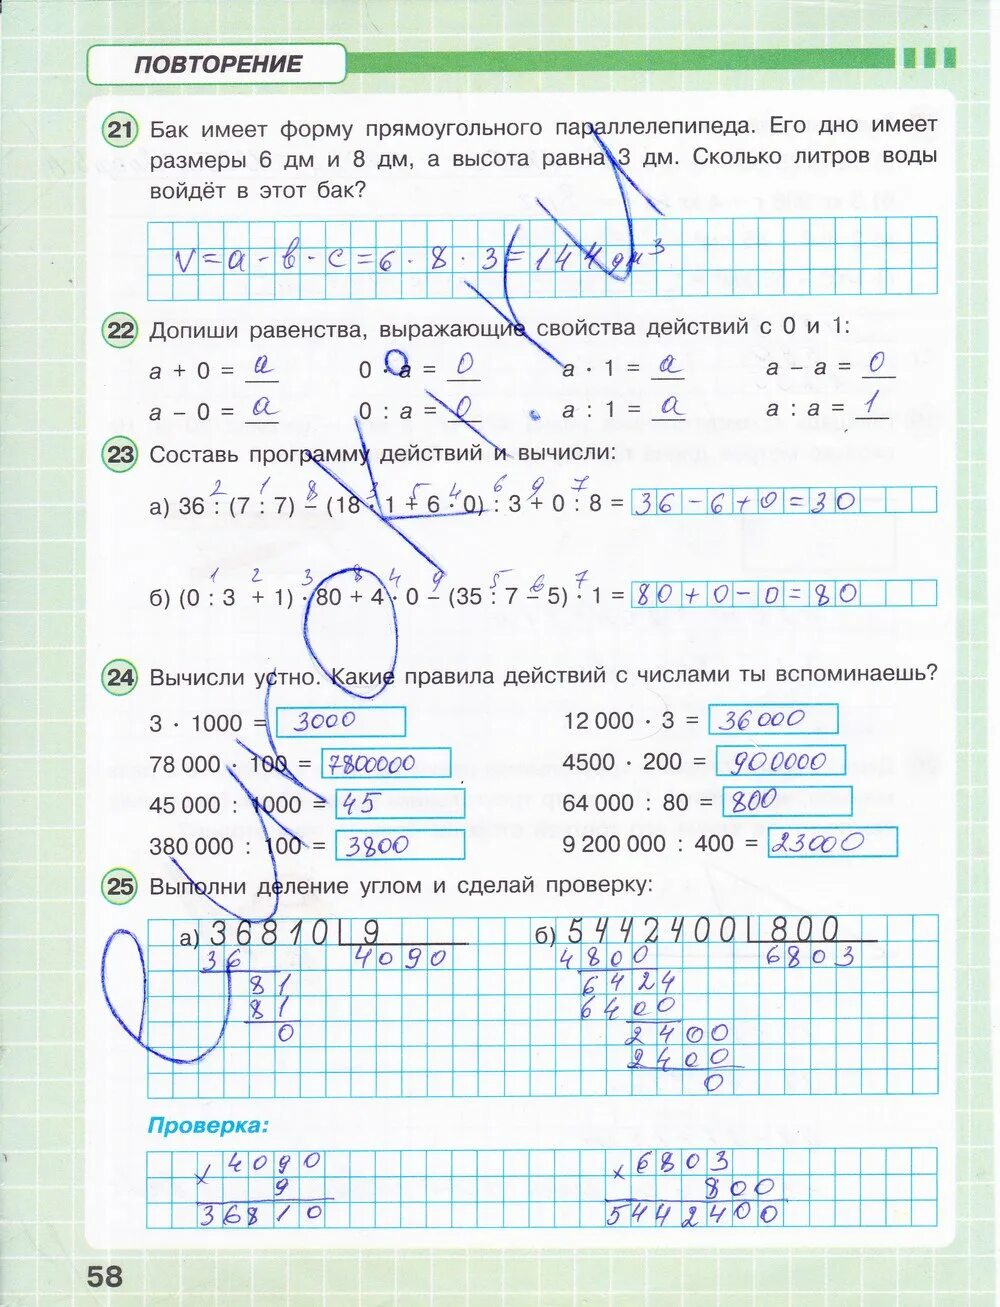 ПОВТОРЕНИЕ
21 Бак имеет форму прямоугольного параллелепипеда. Его дно имеет
размеры 6 дм и 8 дм, а высота равна 3 дм. Сколько литров воды
войдёт в этот бак?
V = a - b · c = 6 · 8 · 3 = 144 дм³
22 Допиши равенства, выражающие свойства действий с 0 и 1:
a + 0 = a 0 · a = 0 a · 1 = a a - a = 0
a - 0 = a 0 : a = 0 a : 1 = a a : a = 1
23 Составь программу действий и вычисли:
2 1 8 3 5 4 6 9 7
а) 36 : (7 : 7) - (18 · 1 + 6 · 0) : 3 + 0 : 8 = 36 - 6 + 0 = 30
1 2 3 8 4 9 5 6 7
б) (0 : 3 + 1) · 80 + 4 · 0 - (35 : 7 - 5) · 1 = 80 + 0 - 0 = 80
24 Вычисли устно. Какие правила действий с числами ты вспоминаешь?
3 · 1000 = 3000 12 000 · 3 = 36000
78 000 · 100 = 7800000 4500 · 200 = 900000
45 000 : 1000 = 45 64 000 : 80 = 800
380 000 : 100 = 3800 9 200 000 : 400 = 23000
25 Выполни деление углом и сделай проверку:
а) 36810 9 б) 5442400 800
36 4090 4800 6803
81 6424
81 6400
0 2400
2400
0
Проверка:
× 4090 × 6803
9 800
36810 5442400
58